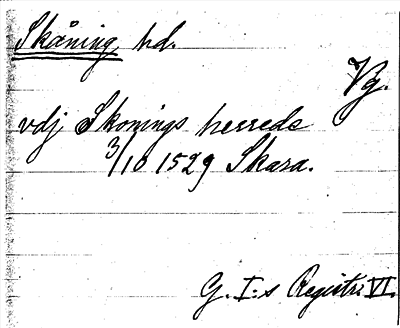 Skåning, hd.
Vg.
vdj Skonings herrede
3/10 1529 Skara.
G. I:s Registr. VI.